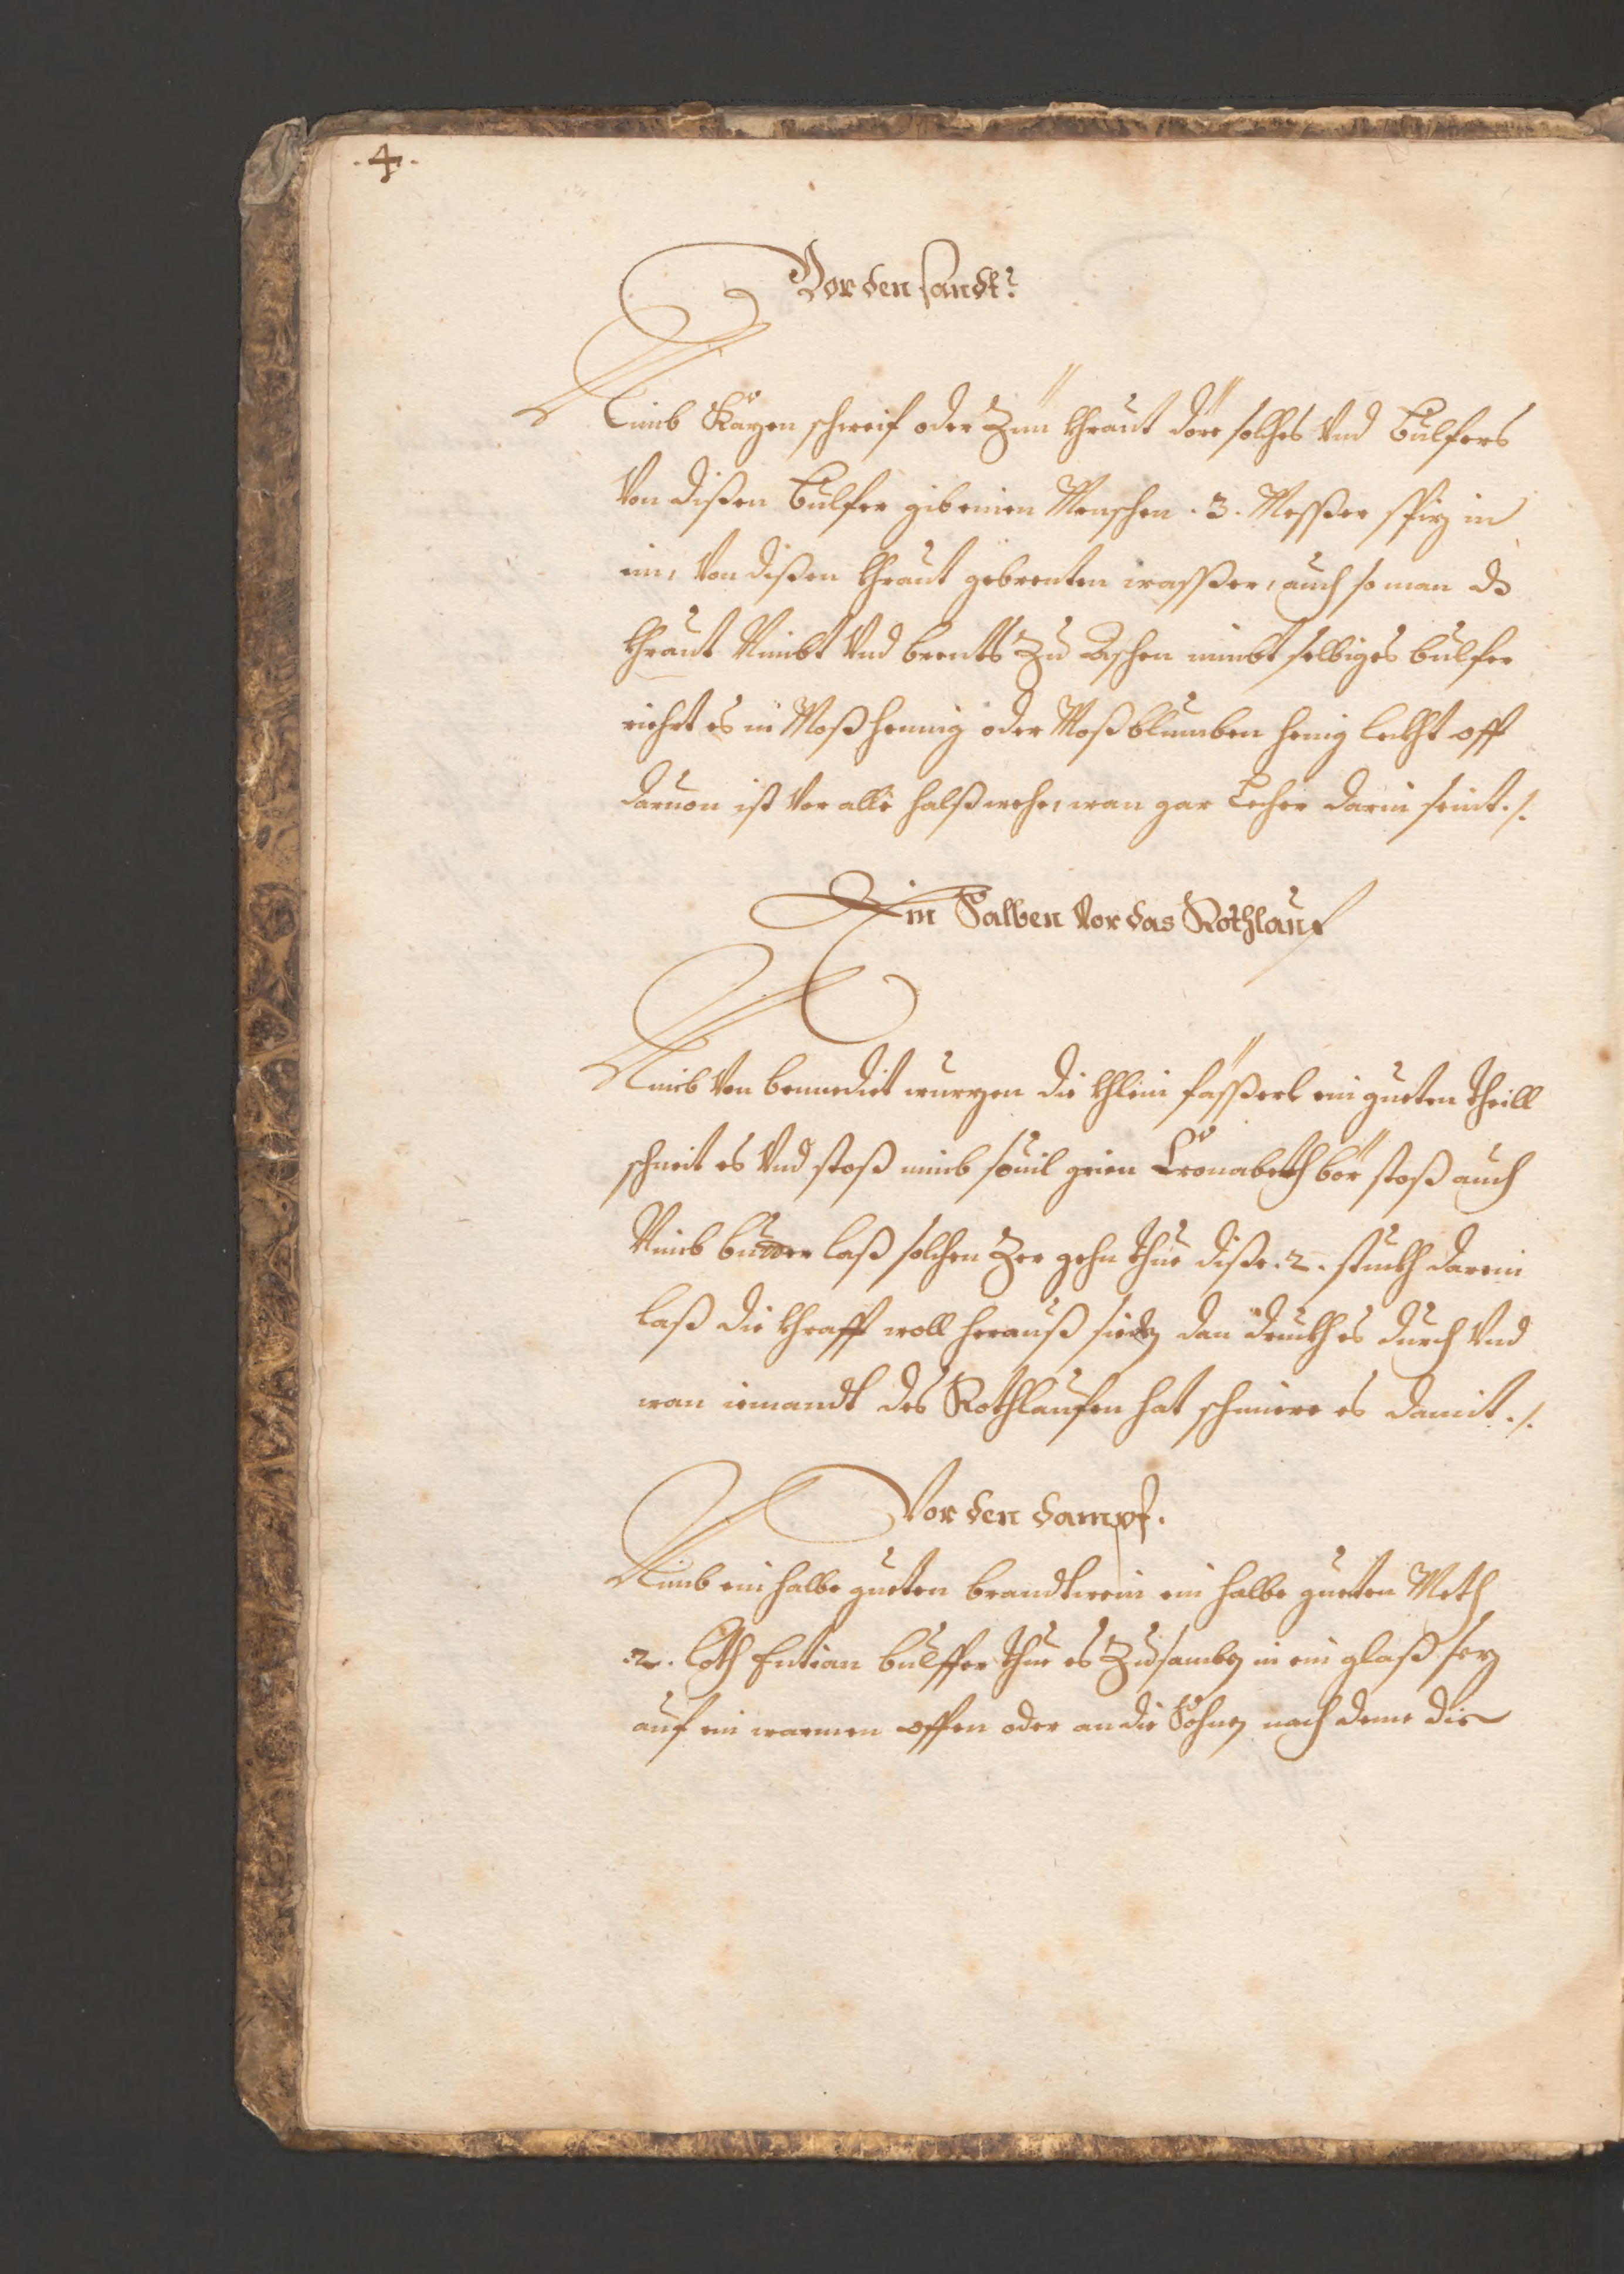 .4.
Vor den sandt:
Nimb Kazen schweif oder Zün khraut dörr solches Vnd Bulfers
Von dißen Bulfer gib einen Menschen .3. Messer spiz in
ein, Von dißen khraut gebrenten wasser, auch so man ds
khraut Nimbt Vnd brents Zu Aschen nimbt selbiges bulfer
riehrt es in Roßhennig oder Roßblumben henig lekht off
daruon ist vor alle halß wehe, wan gar Lecher darin seint ./.
Ein Salben Vor das Rothlauf
Nimb Von bennedict wurzen die khlein fässerl ein gueten theill
schneit es Vnd stoß nimb souil grien Cronabeth bör stoß auch
Nimb butter laß solchen Zer gehn thue diße .2. stukh darein
laß die khrafft woll herauß sieden dan drukh es durch Vnd
wan iemandt des Rothlaufen hat schmiere es damit ./.
Vor den dampf.
Nimb ein halbe gueten brandtwein ein halbe gueten Meth
.2. loth Entian bulffer thue es Zusamben in ein glaß sez
auf ein warmen offen oder an die Sohnen nach deme die